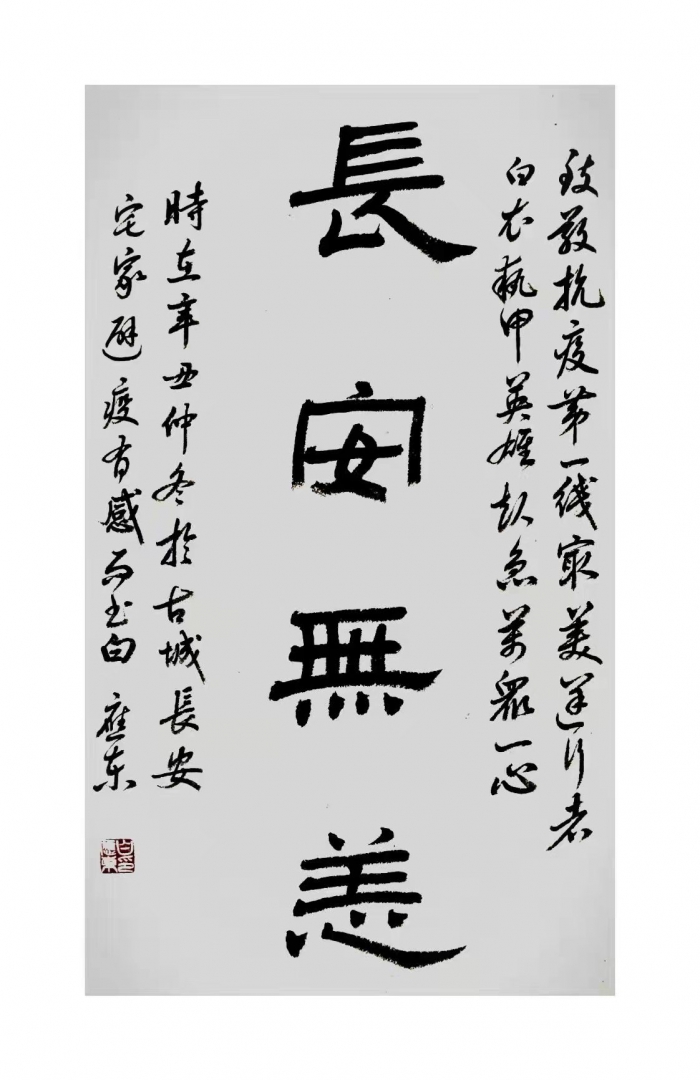 致敬抗疫第一綫最美逆行者
白衣執甲英雄赴急萬眾一心
長安無恙
時在辛丑仲冬於古城長安
宅家避疫有感而书白應东
白應東印